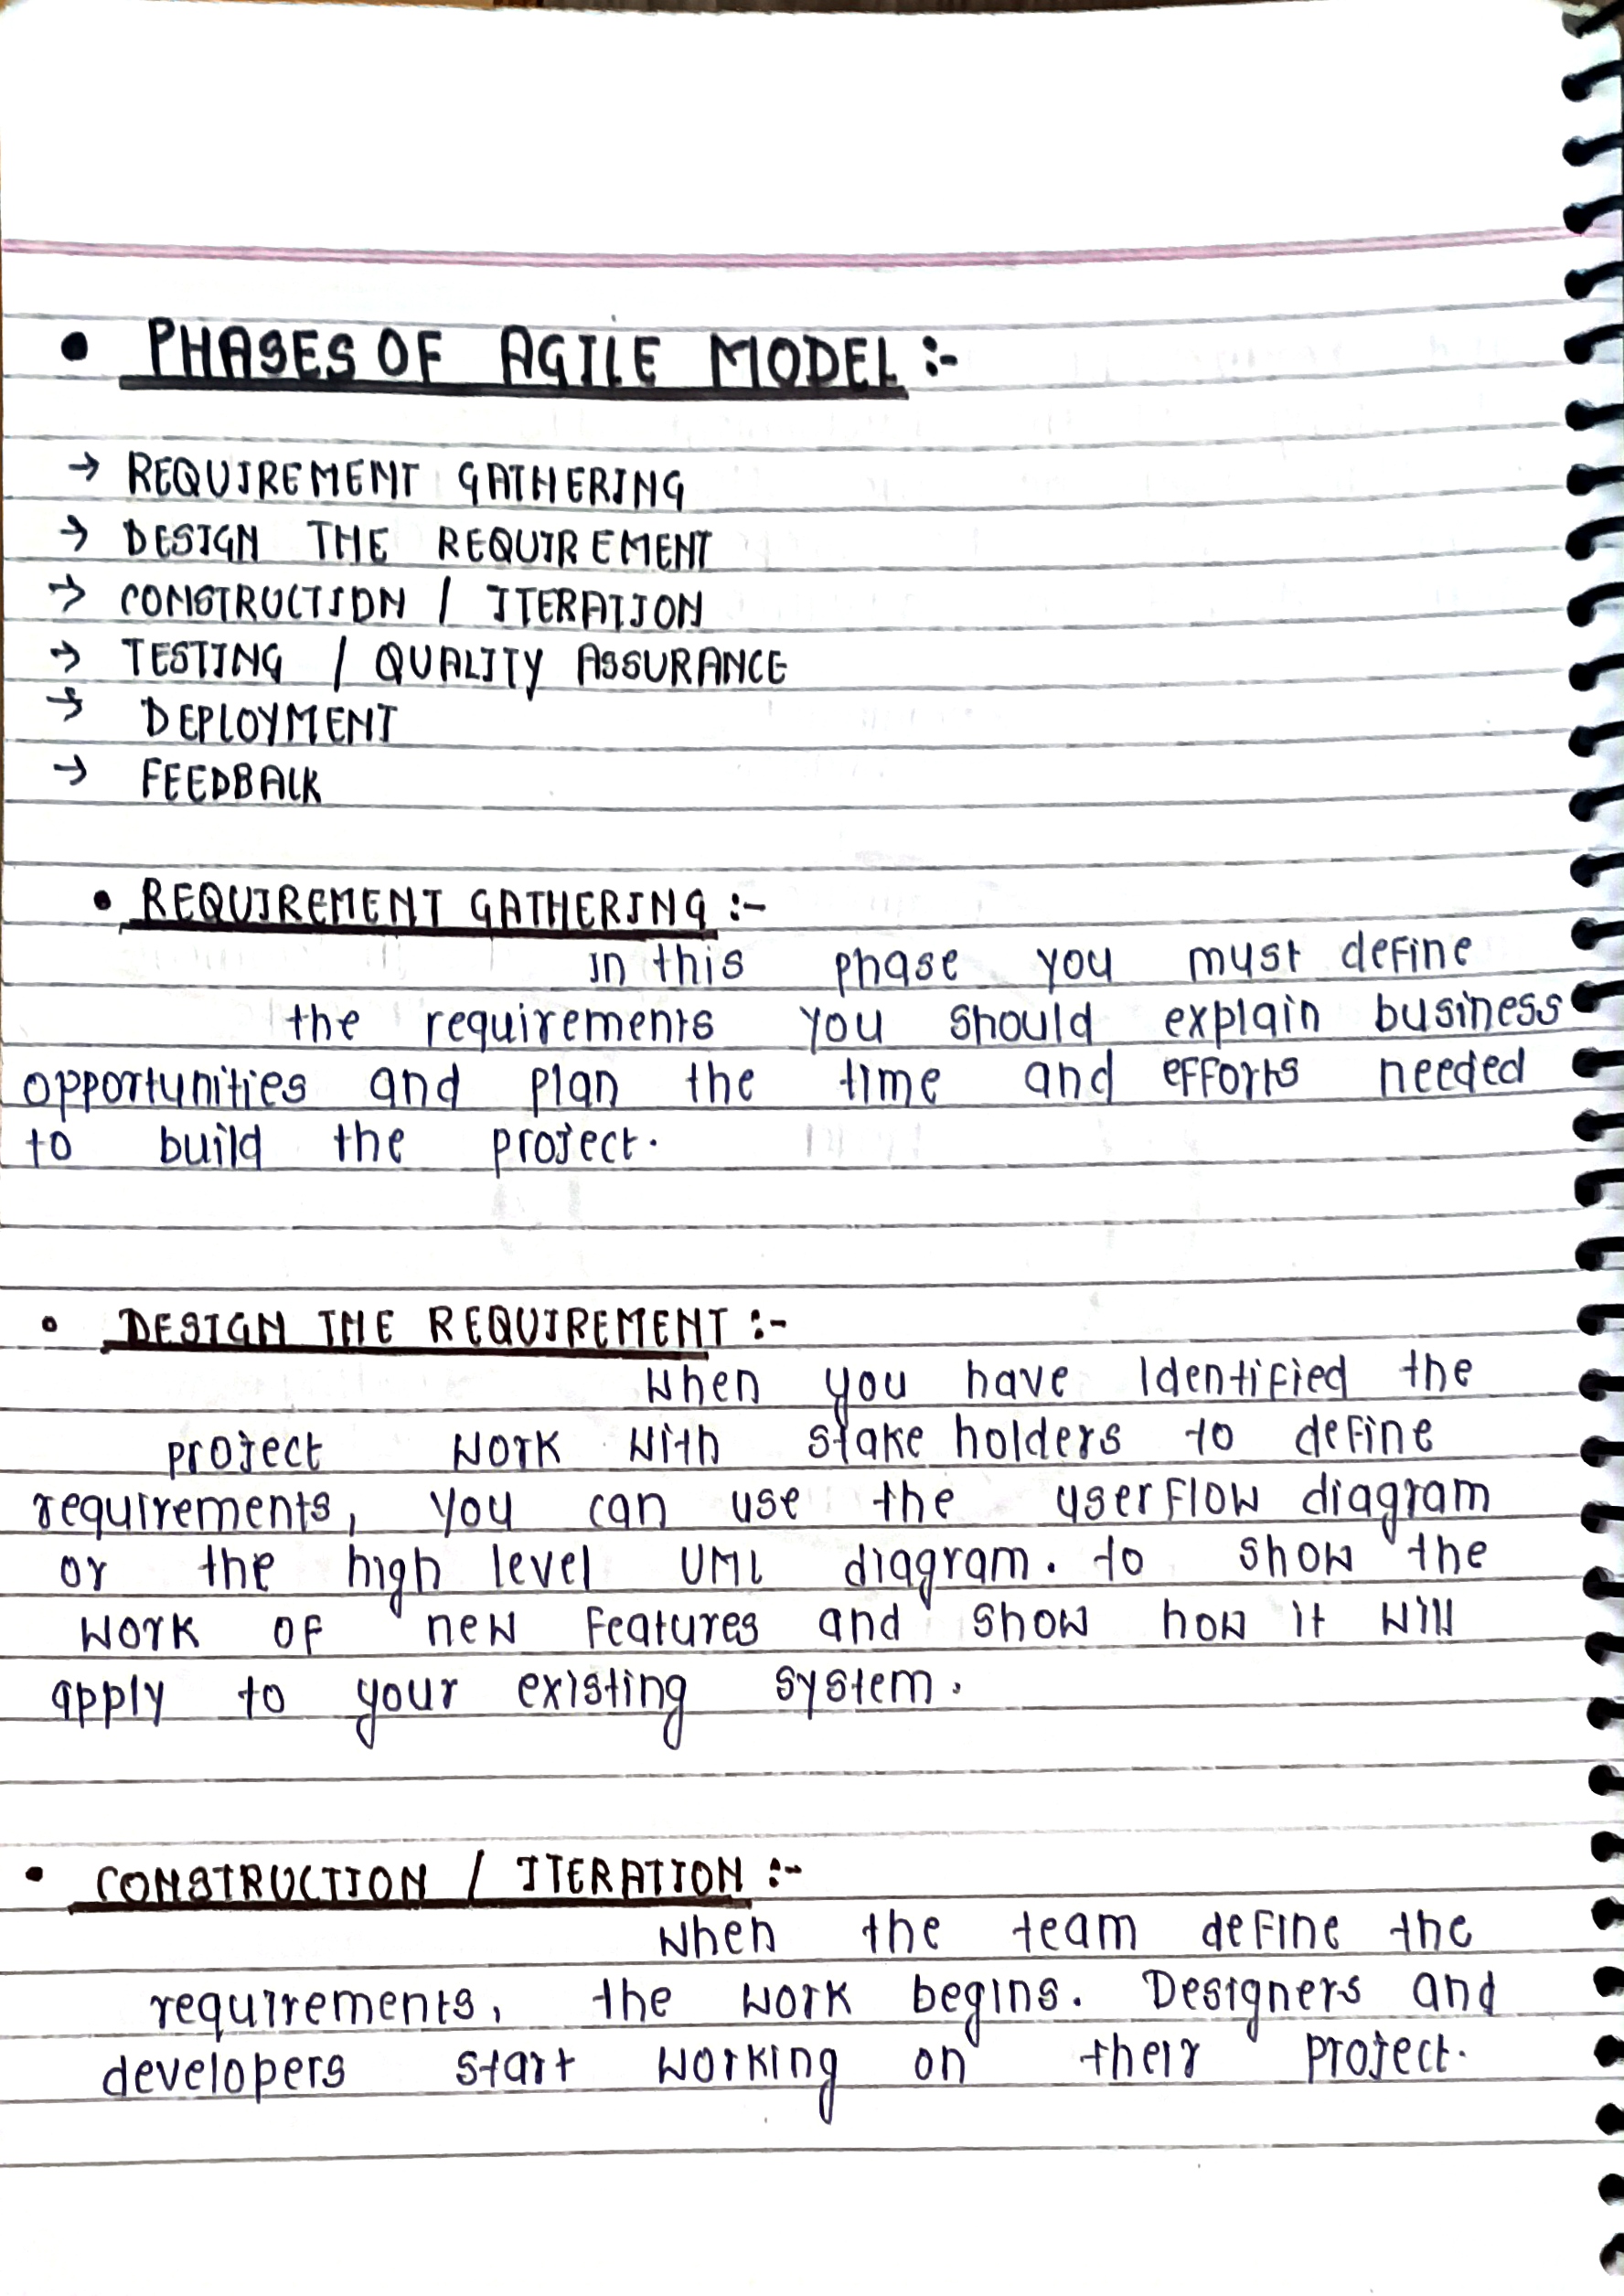 • PHASES OF AGILE MODEL :-
→ REQUIREMENT GATHERING
→ DESIGN THE REQUIREMENT
→ CONSTRUCTION / ITERATION
→ TESTING / QUALITY ASSURANCE
→ DEPLOYMENT
→ FEEDBACK
• REQUIREMENT GATHERING :-
In this phase you must define
the requirements you should explain business
opportunities and plan the time and efforts needed
to build the project.
• DESIGN THE REQUIREMENT :-
When you have Identified the
project work with stake holders to define
requirements, you can use the user flow diagram
or the high level UML diagram. to show the
work of new features and show how it will
apply to your existing system.
• CONSTRUCTION / ITERATION :-
When the team define the
requirements, the work begins. Designers and
developers start working on their project.